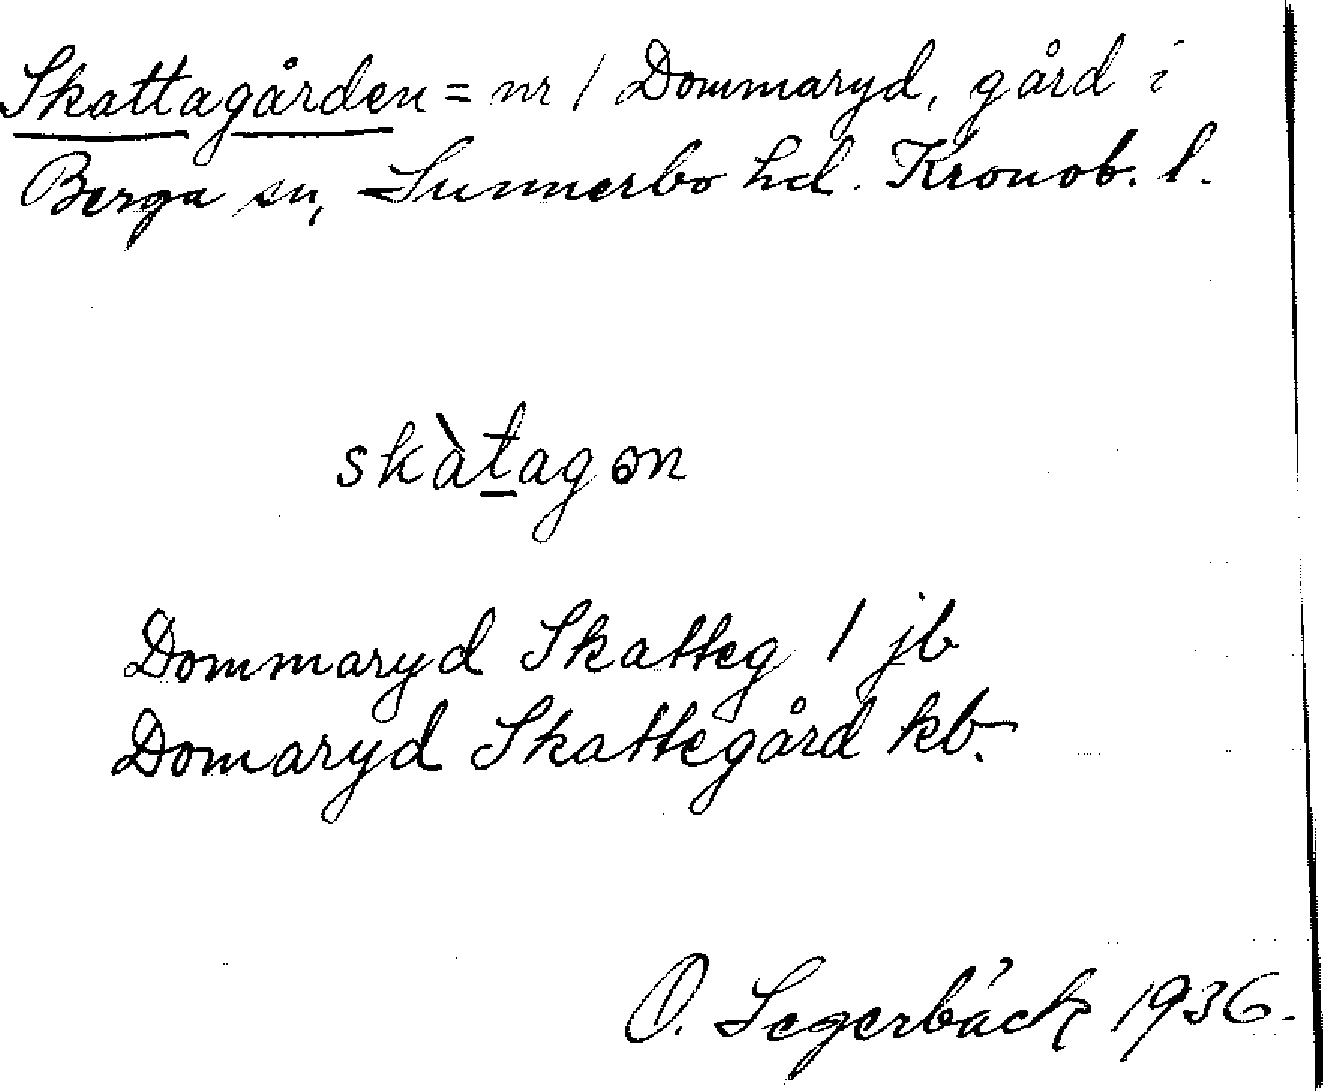 Skattagården = nr 1 Dommaryd, gård i
Berga sn, Sunnerbo hd. Kronob. l.
skàt̲agon
Dommaryd Skatteg 1 jb
Domaryd Skattegård kb.
O. Segerbäck 1936.